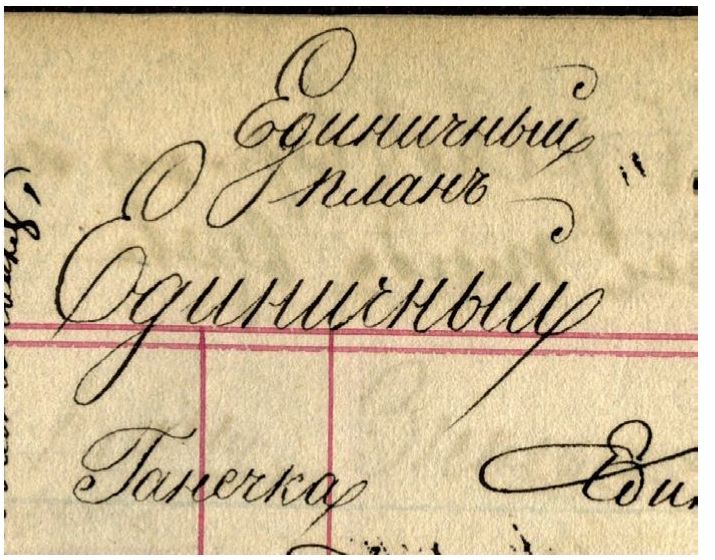 Единичный
планъ "
Единичный
Танечка Еди